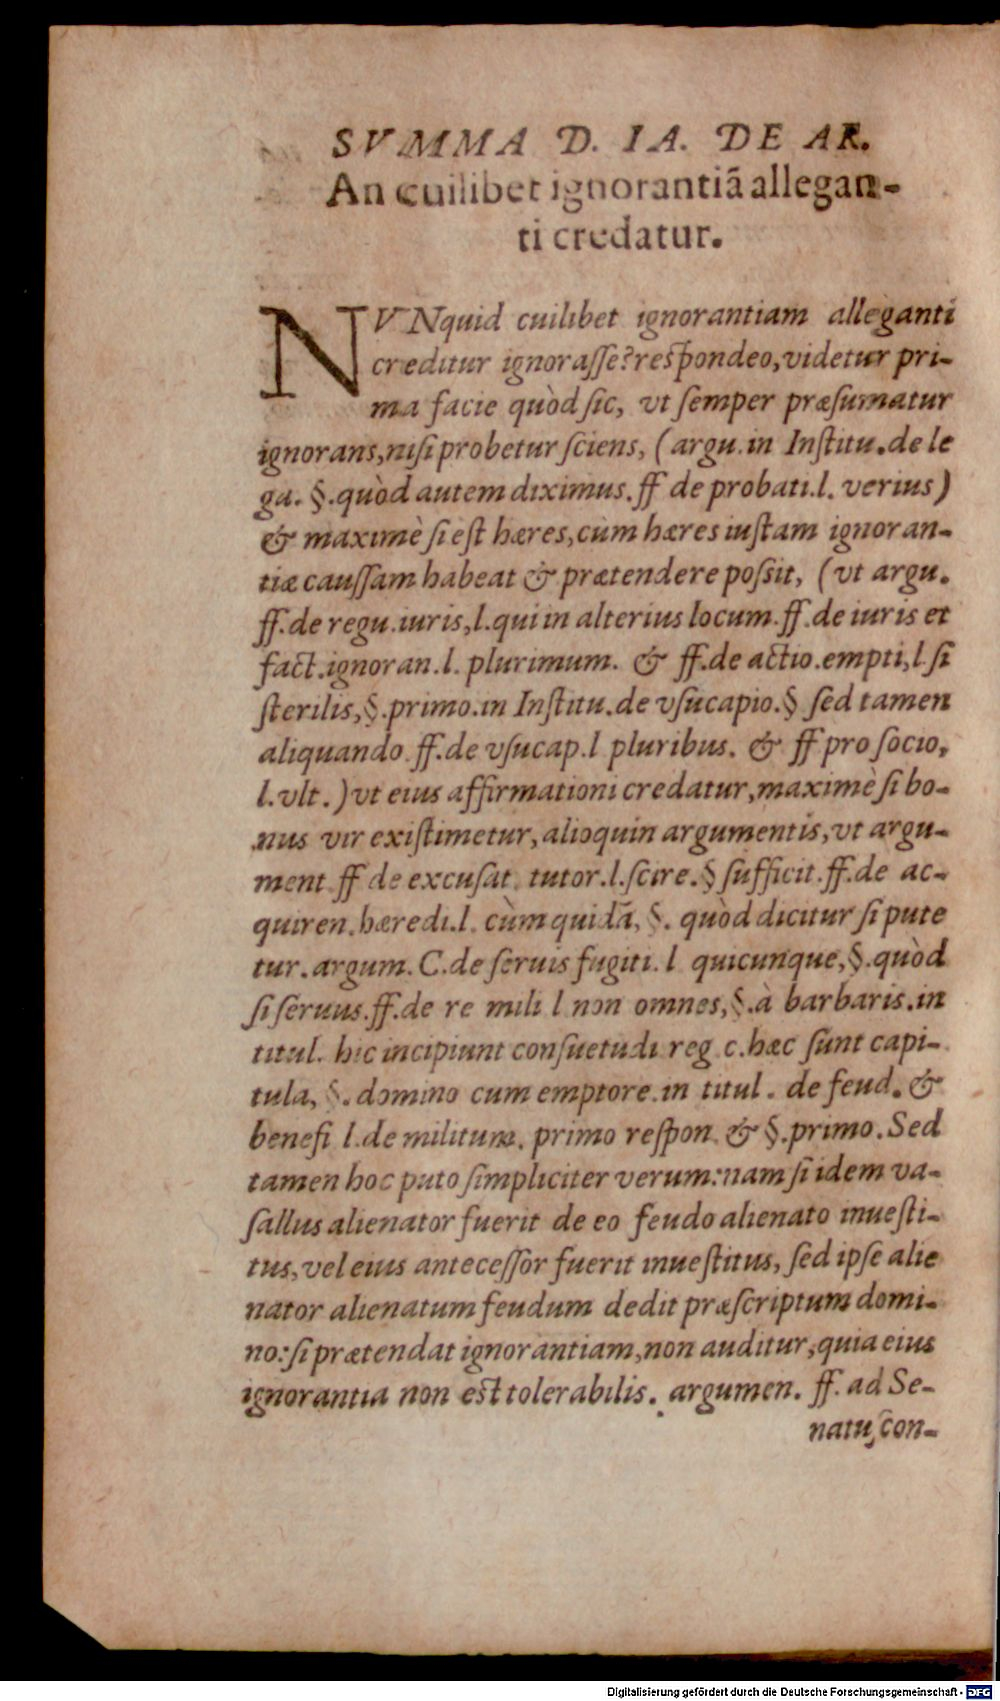 SVMMA D. IA. DE AR.
An cuilibet ignorantiã allegan-
ti credatur.
NVNquid cuilibet ignorantiam alleganti
creditur ignorasse? respondeo, videtur pri-
ma facie quòd sic, vt semper præsumatur
ignorans, nisi probetur sciens, (argu. in Institu. de le
ga. §. quòd autem diximus. ff de probati. l. verius)
& maximè si est hæres, cùm hæres iustam ignoran-
tiæ caussam habeat & prætendere possit, (vt argu.
ff. de regu. iuris, l. qui in alterius locum. ff. de iuris et
fact. ignoran. l. plurimum. & ff. de actio. empti, l. si
sterilis, §. primo. in Institu. de vsucapio. § sed tamen
aliquando ff. de vsucap. l pluribus. & ff pro socio,
l. vlt.) vt eius affirmationi credatur, maximè si bo-
nus vir existimetur, alioquin argumentis, vt argu-
ment ff de excusat. tutor. l. scire. § sufficit. ff. de ac-
quiren. hæredi. l. cùm quidã, §. quòd dicitur si pute
tur. argum. C. de seruis fugiti. l quicunque, §. quòd
si seruus. ff. de re mili l non omnes, §. à barbaris. in
titul. hic incipiunt consuetudi reg c. hæc sunt capi-
tula, §. domino cum emptore. in titul. de feud. &
benefi l. de militum. primo respon. & §. primo. Sed
tamen hoc puto simpliciter verum: nam si idem va-
sallus alienator fuerit de eo feudo alienato inuesti-
tus, vel eius antecessor fuerit inuestitus, sed ipse alie
nator alienatum feudum dedit præscriptum domi-
no: si prætendat ignorantiam, non auditur, quia eius
ignorantia non est tolerabilis. argumen. ff. ad Se-
natuscon-
Digitalisierung gefördert durch die Deutsche Forschungsgemeinschaft - DFG